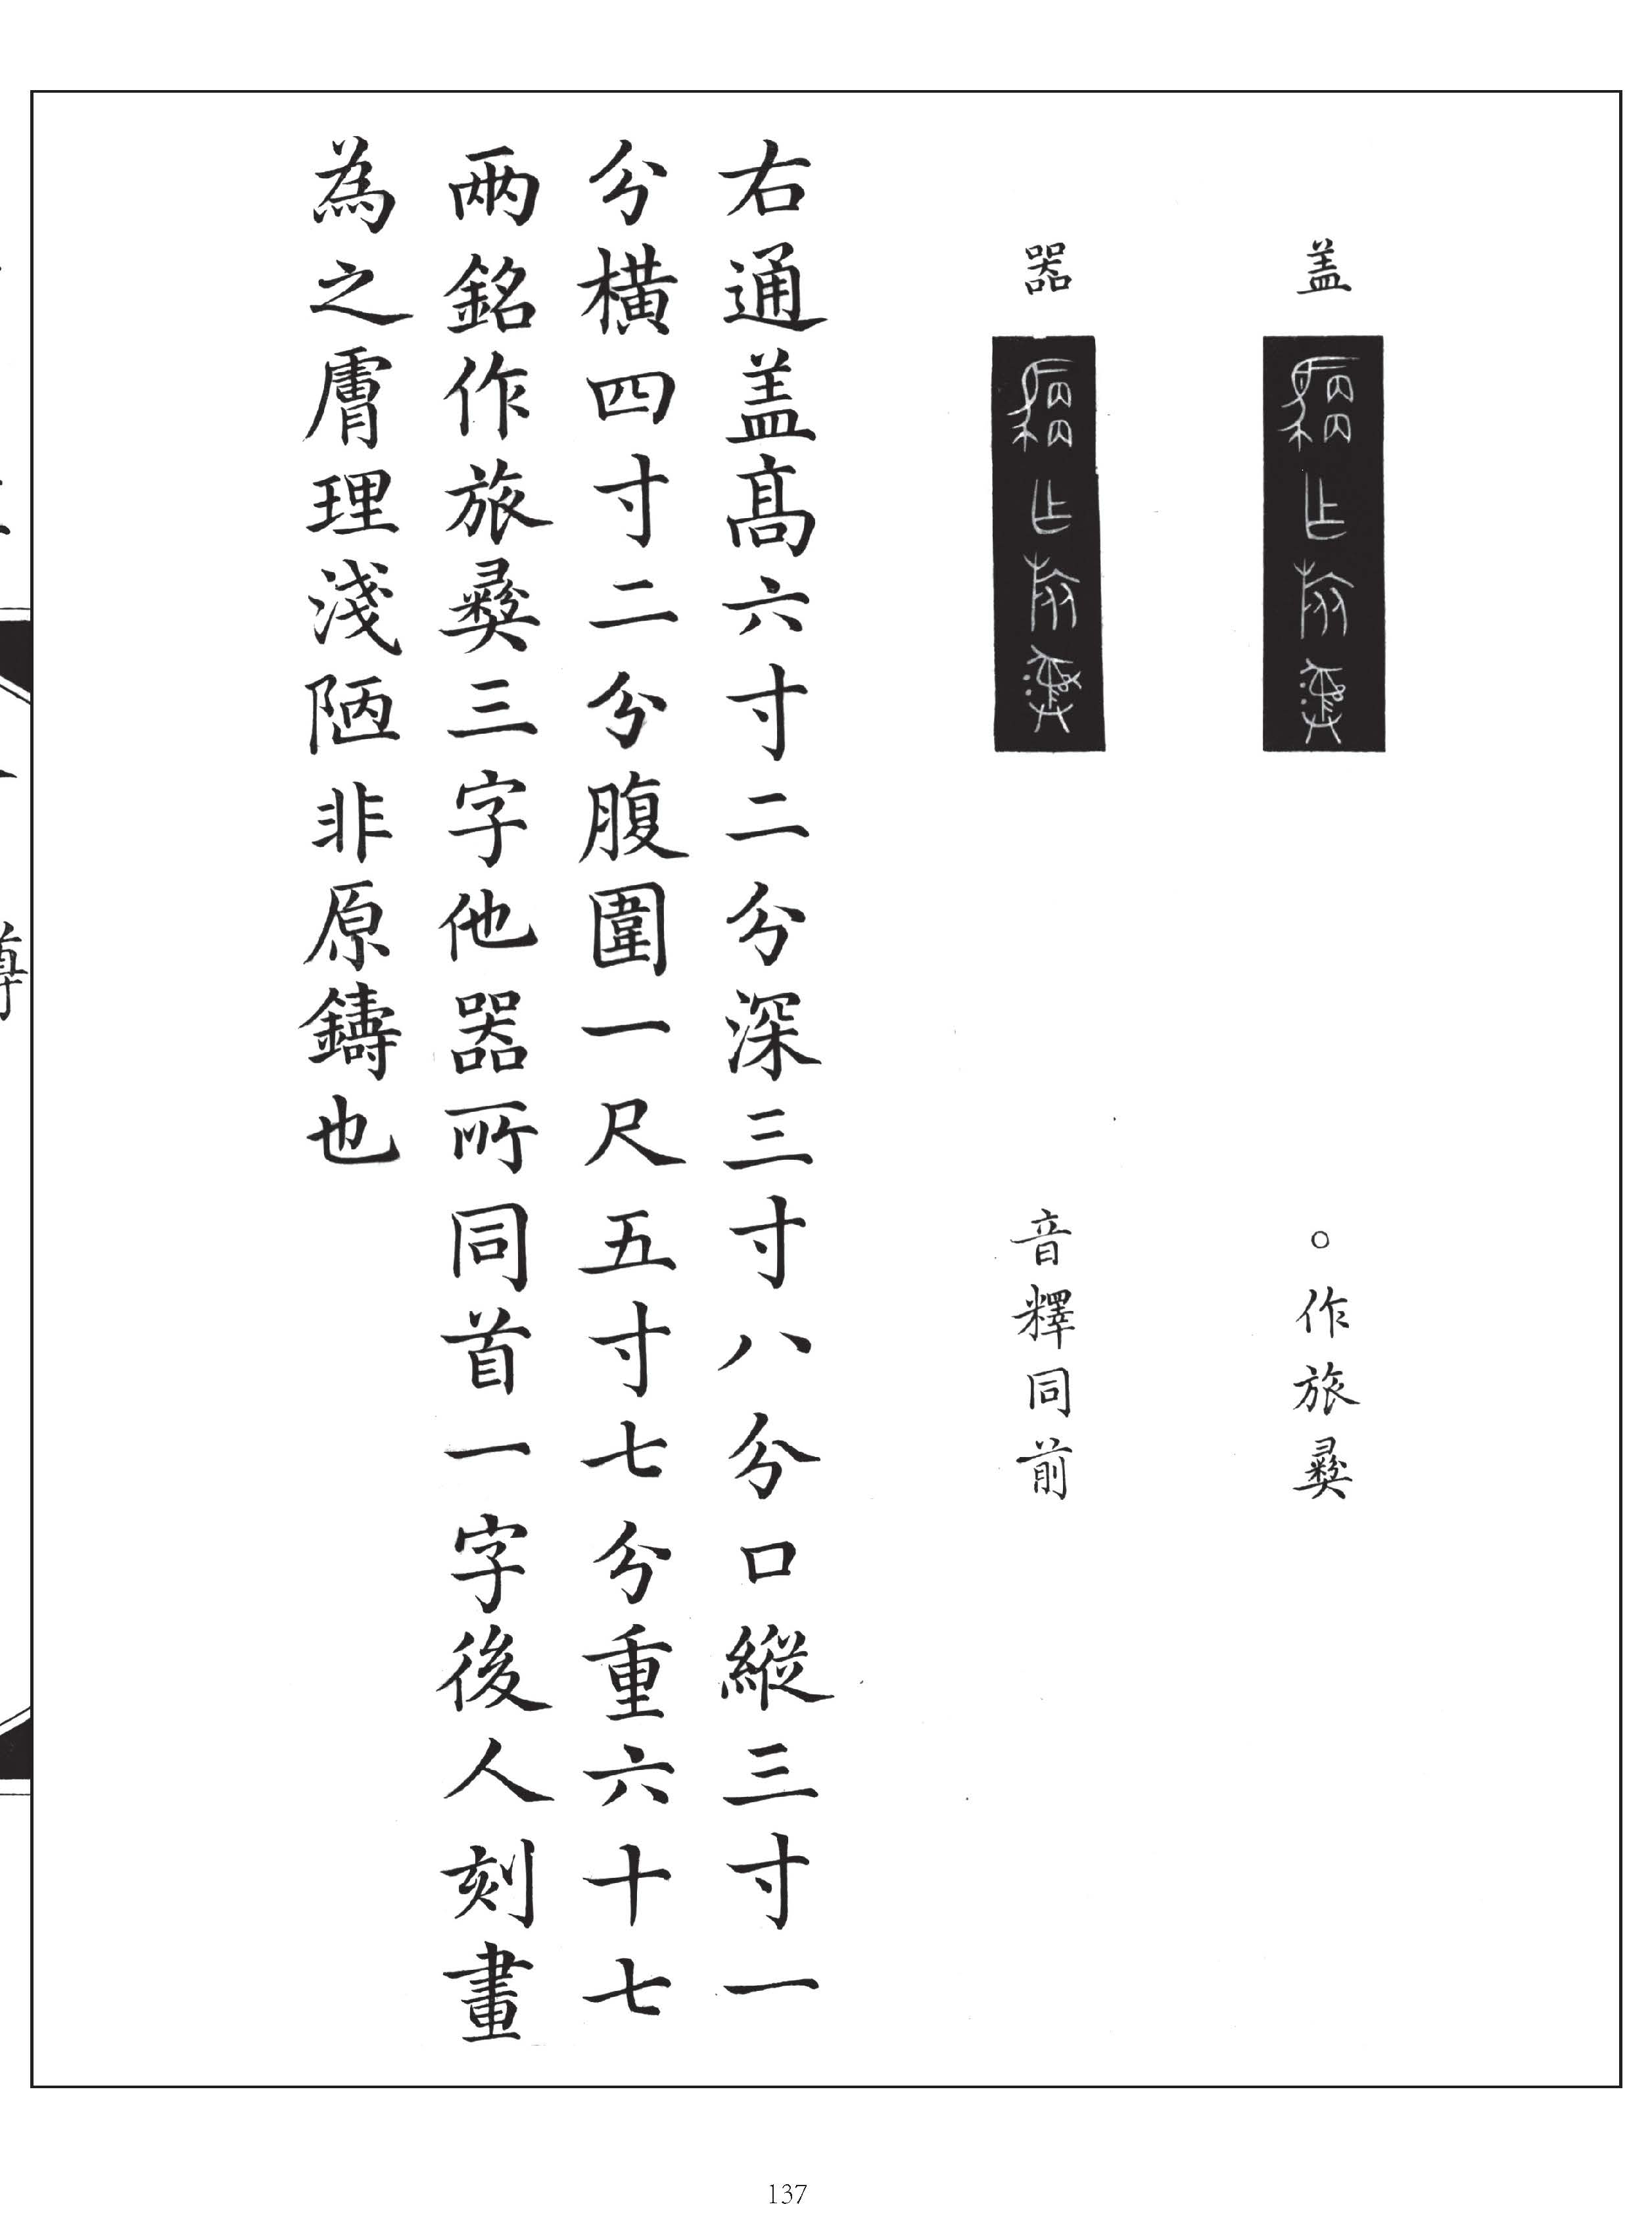 蓋
○作旅彝
器
音釋同前
右通蓋高六寸二分深三寸八分口縱三寸一
分橫四寸二分腹圍一尺五寸七分重六十七
兩銘作旅彝三字他器所同首一字後人刻畫
為之膚理淺陋非原鑄也
137